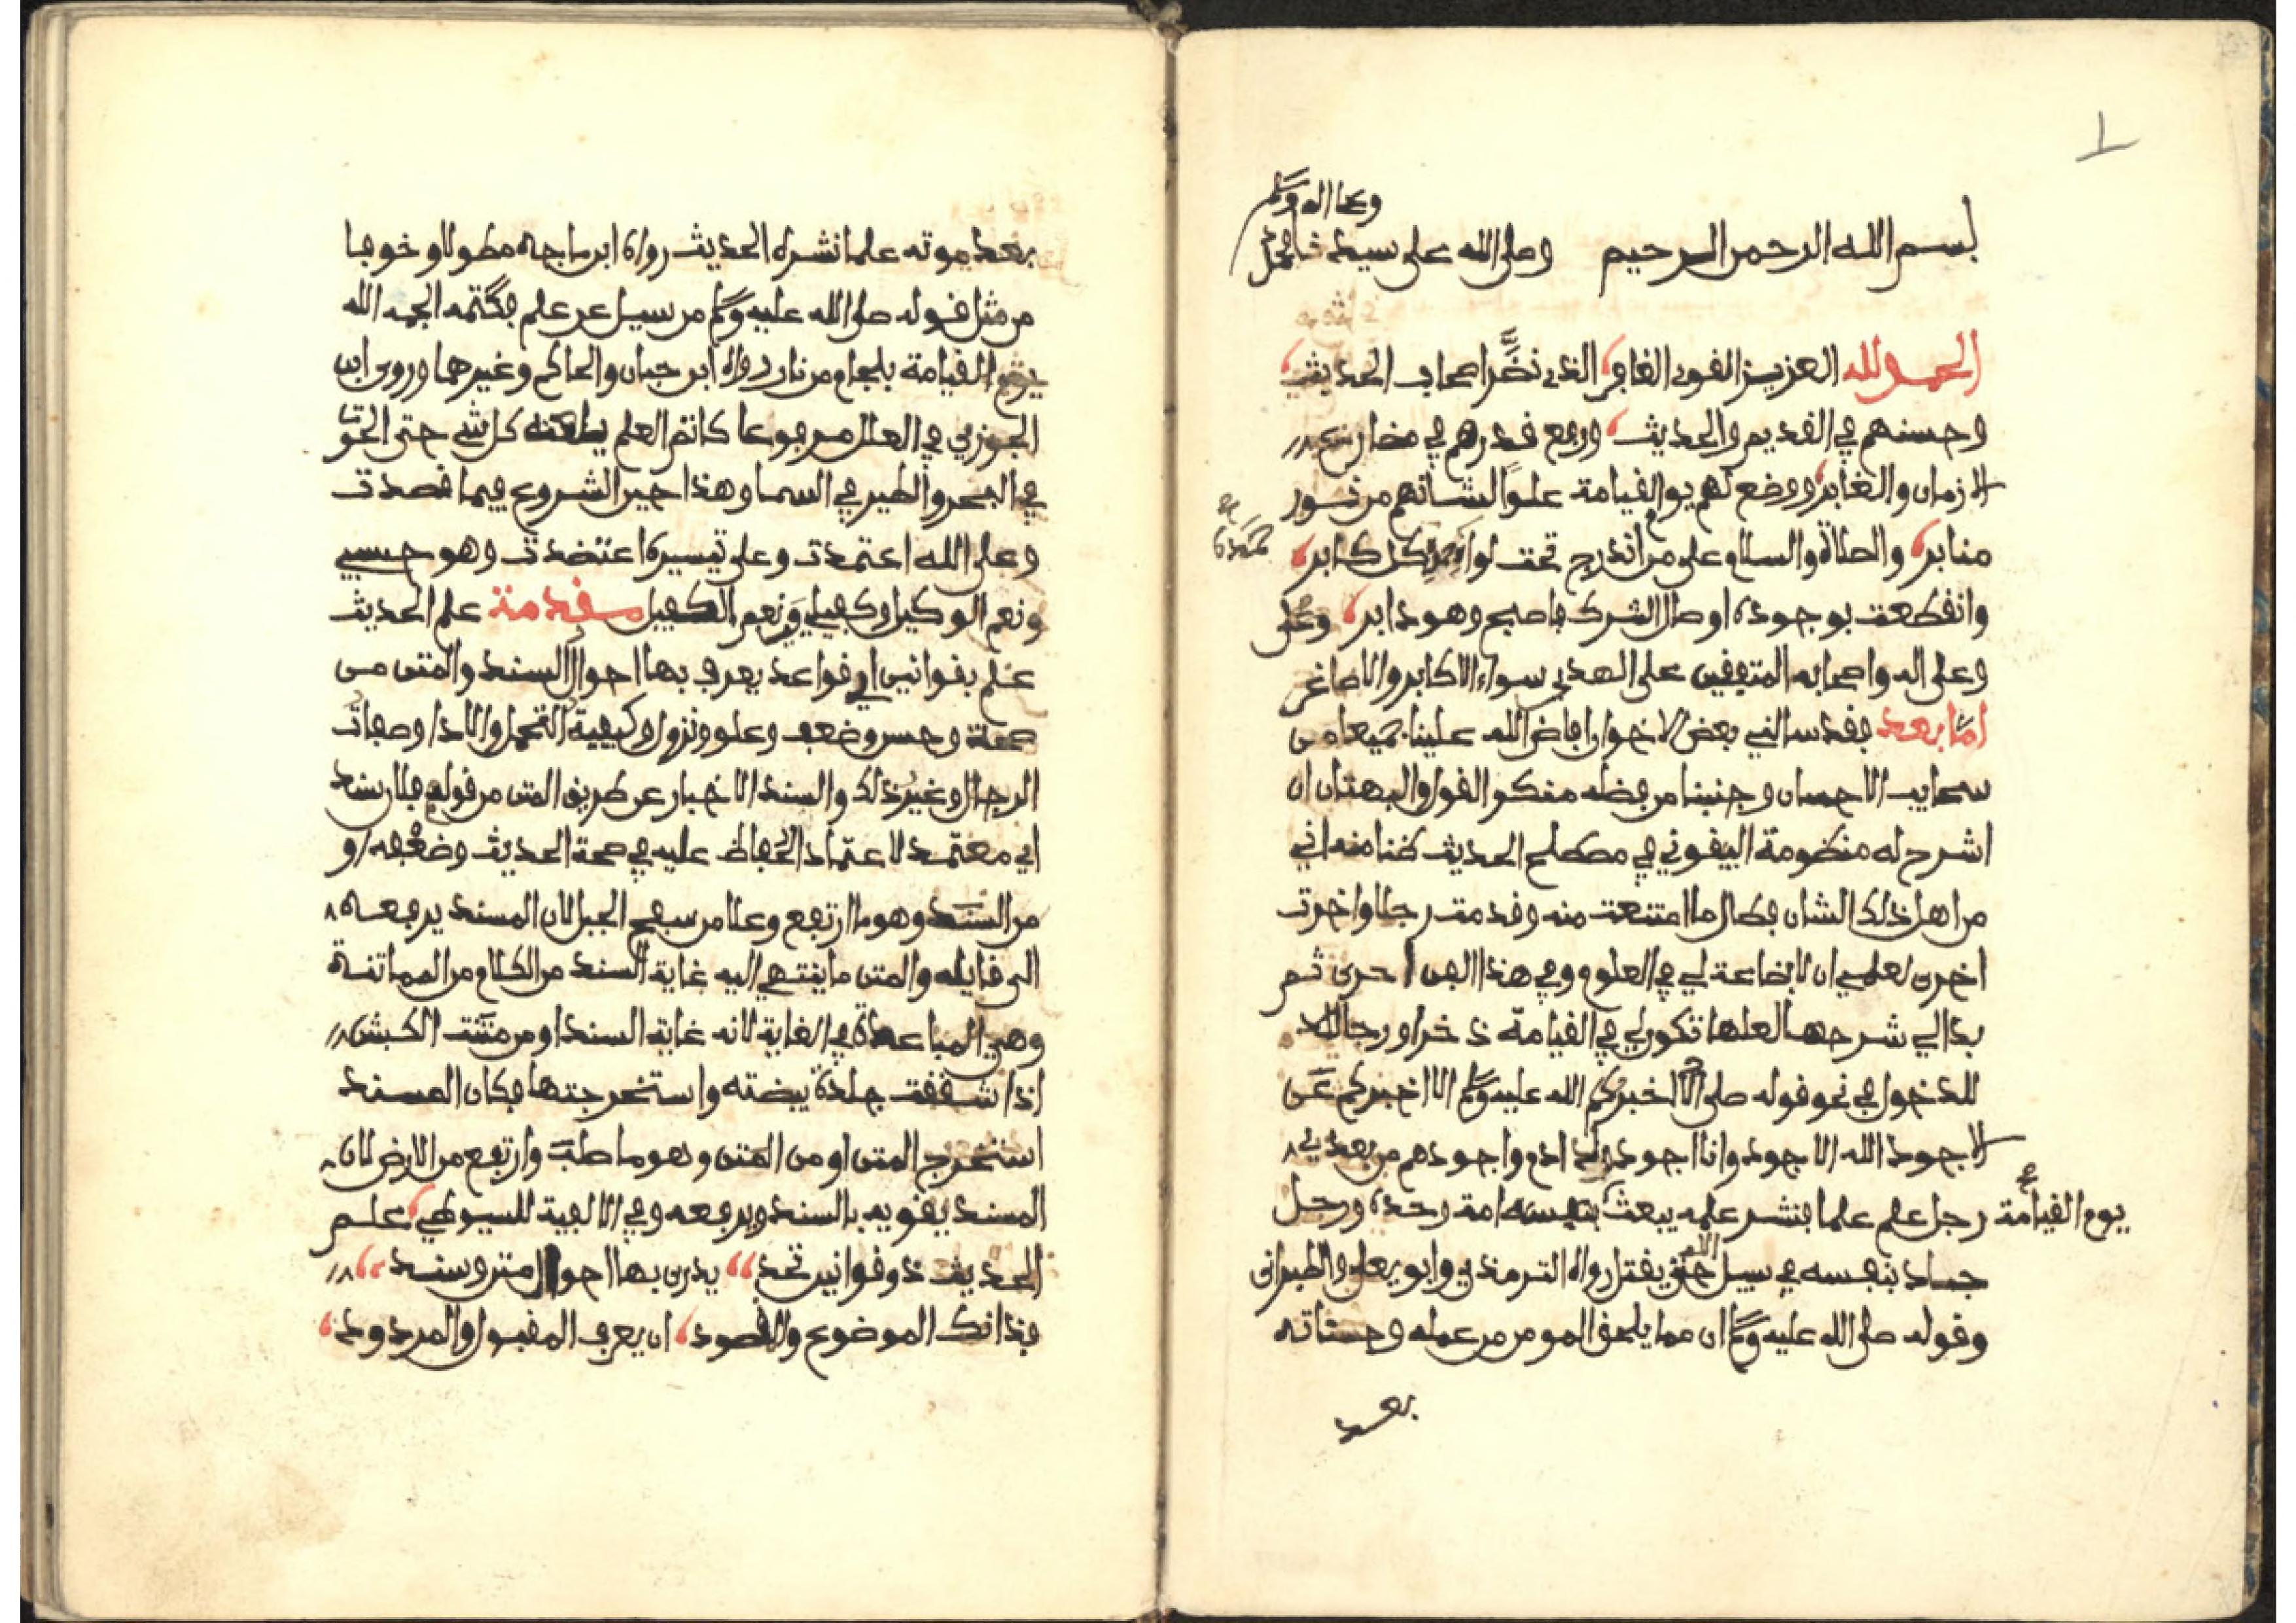 وعلى اله وسلم
بسم الله الرحمن الرحيم وصلى الله على سيدنا محمد
الحمد لله العزيز القوي الغافر الذي نضر اصحاب الحديث
وحسنهم في القديم والحديث ورفع قدرهم في
الازمان والغابر ووضع لهم يوم القيامة علوا لشانهم من نور
منابر والصلاة والسلام على من اندرج تحت لواء كل كابر
وانقطعت بوجوده اوصال الشرك فاصبح وهو دابر
وعلى اله واصحابه المتفقين على الهدي سواء الاكابر والاصاغر
اما بعد فقد سالني بعض الاخوان افاض الله علينا جميعا من
سحايب الاحسان وجنبنا من فضله منكر القول والبهتان ان
اشرح له منظومة البيقوني في مصطلح الحديث ظنا منه اني
من اهل ذلك الشان فطال ما امتنعت منه وقدمت رجلا واخرت
اخرى لعلمي ان لا بضاعة لي في العلوم وفي هذا الفن احرى ثم
بدا لي شرحها لعلها تكون لي في القيامة ذخرا ورجا لله
للدخول في نحو قوله صلى الله عليه وسلم الا اخبركم عن
الاجود الله الاجود وانا اجود ولد ادم واجودهم من بعدي
يوم القيامة رجل علم علما فنشر علمه يبعث بنفسه امة وحده ورجل
جاد بنفسه في سبيل الله حتى يقتل رواه الترمذي وابو يعلى والطبراني
وقوله صلى الله عليه وسلم ان مما يلحق المومن من عمله وحسناته
بعد
بعد موته علما نشره الحديث رواه ابن ماجه مطولا وخوفا
من مثل قوله صلى الله عليه وسلم من سيل عن علم فكتمه الجمه الله
يوم القيامة بلجام من نار رواه ابن حبان والحاكم وغيرهما وروى ابن
الجوزي في العلل مرفوعا كاتم العلم يلعنه كل شي حتى الحوت
في البحر والطير في السما وهذا حين الشروع فيما قصدت
وعلى الله اعتمدت وعلى تيسيره اعتضدت وهو حسبي
ونعم الوكيل وكفيلي ونعم الكفيل مقدمة علم الحديث
علم بقوانين اي قواعد يعرف بها احوال السند والمتن من
صحة وحسن وضعف وعلو ونزول وكيفية التحمل والاداء وصفات
الرجال وغير ذلك والسند الاخبار عن طريق المتن من قولهم فلان سند
اي معتمد لاعتماد الحفاظ عليه في صحة الحديث وضعفه او
من السند وهو ما ارتفع وعلا من سفح الجبل لان المسند يرفعه
الى قايله والمتن ما ينتهي اليه غاية السند من الكلام من المماتنة
وهي المباعدة في الغاية لانه غاية السند او من متنت الكبش
اذا شققت جلدة بيضته واستخرجتها فكان المسند
استخرج المتن او من المتن وهو ما صلب وارتفع من الارض لان
المسند يقويه بالسند ويرفعه وفي الالفية للسيوطي علم
الحديث ذو قوانين تحد يدرى بها احوال متن وسند
فذانك الموضوع والمقصود ان يعرف المقبول والمردود